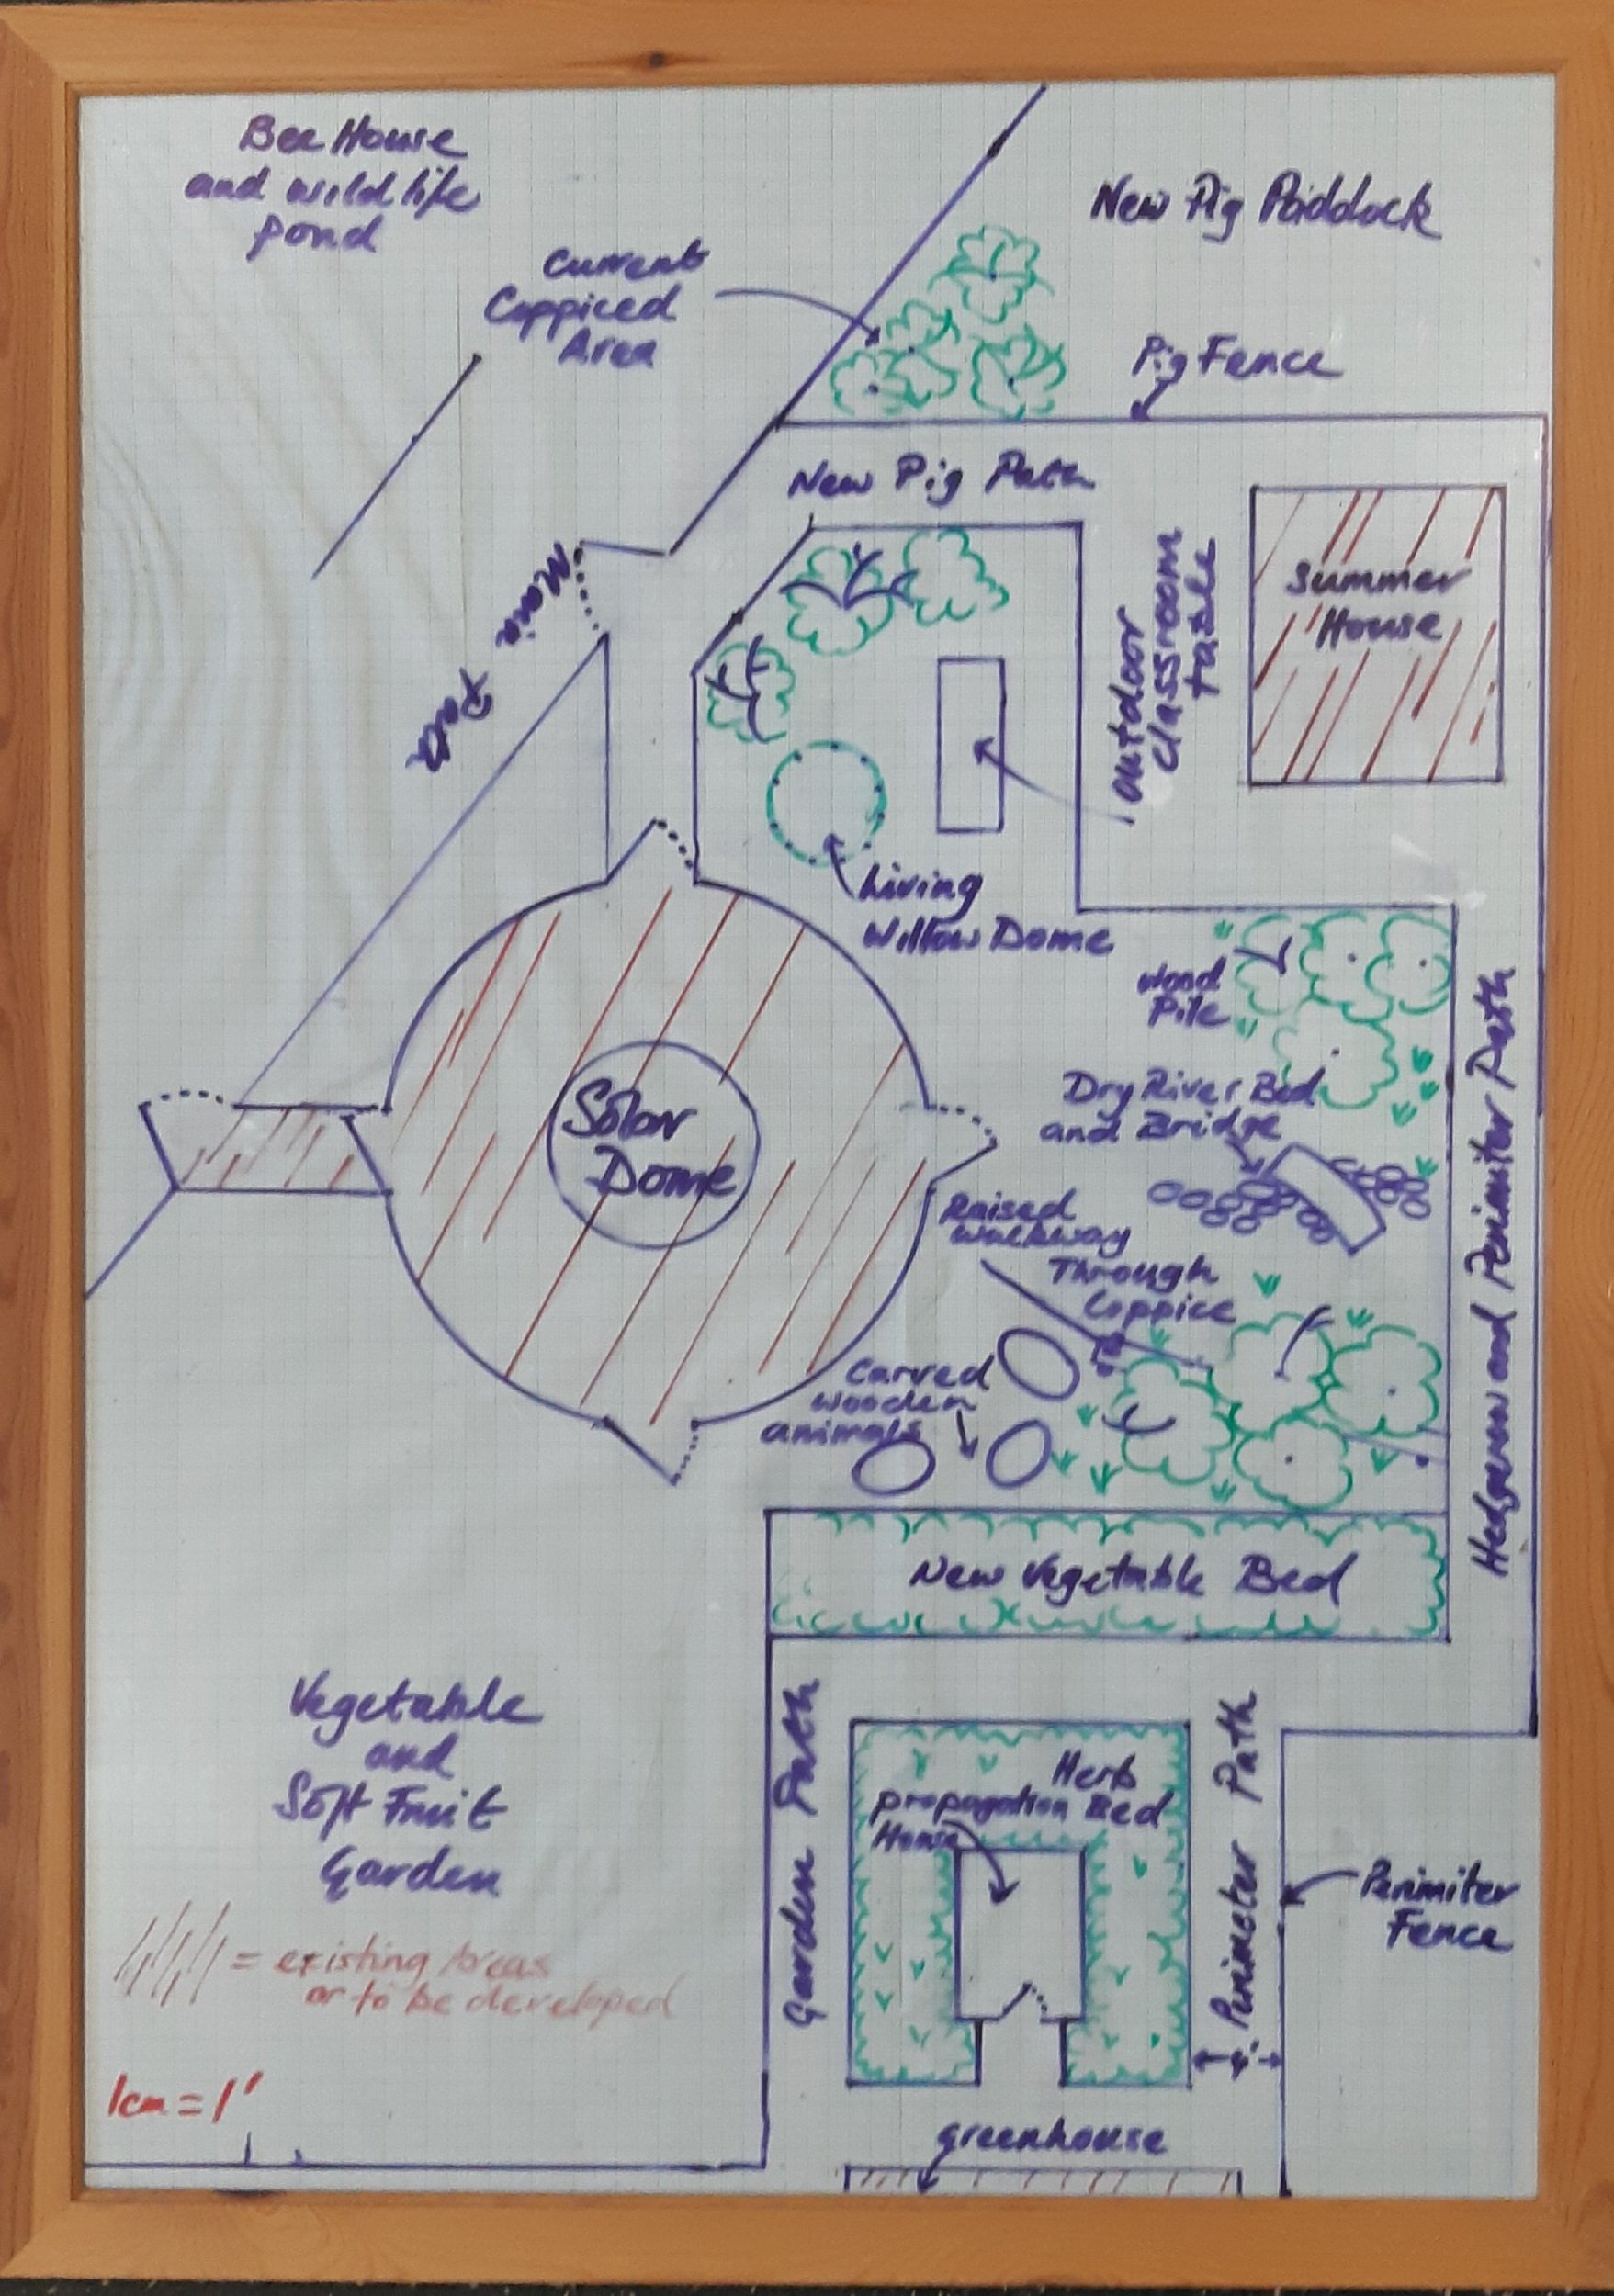 Bee House
and wild life
pond
Current
Coppiced
Area
New Pig Paddock
Pig Fence
New Pig Path
Main Path
outdoor
classroom
table
Summer
House
Living
Willow Dome
Wood
Pile
Dry River Bed
and Bridge
Solar
Dome
Raised
walkway
Through
Coppice
Carved
wooden
animals
Hedgerow and Perimiter Path
New Vegetable Bed
Vegetable
and
Soft Fruit
Garden
Garden Path
Herb
propagation Bed
House
Perimeter Path
Perimiter
Fence
= existing areas
or to be developed
1cm = 1'
greenhouse